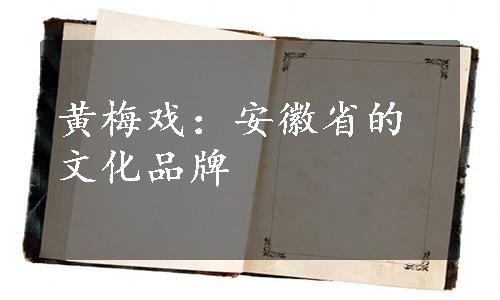 黄梅戏：安徽省的
文化品牌